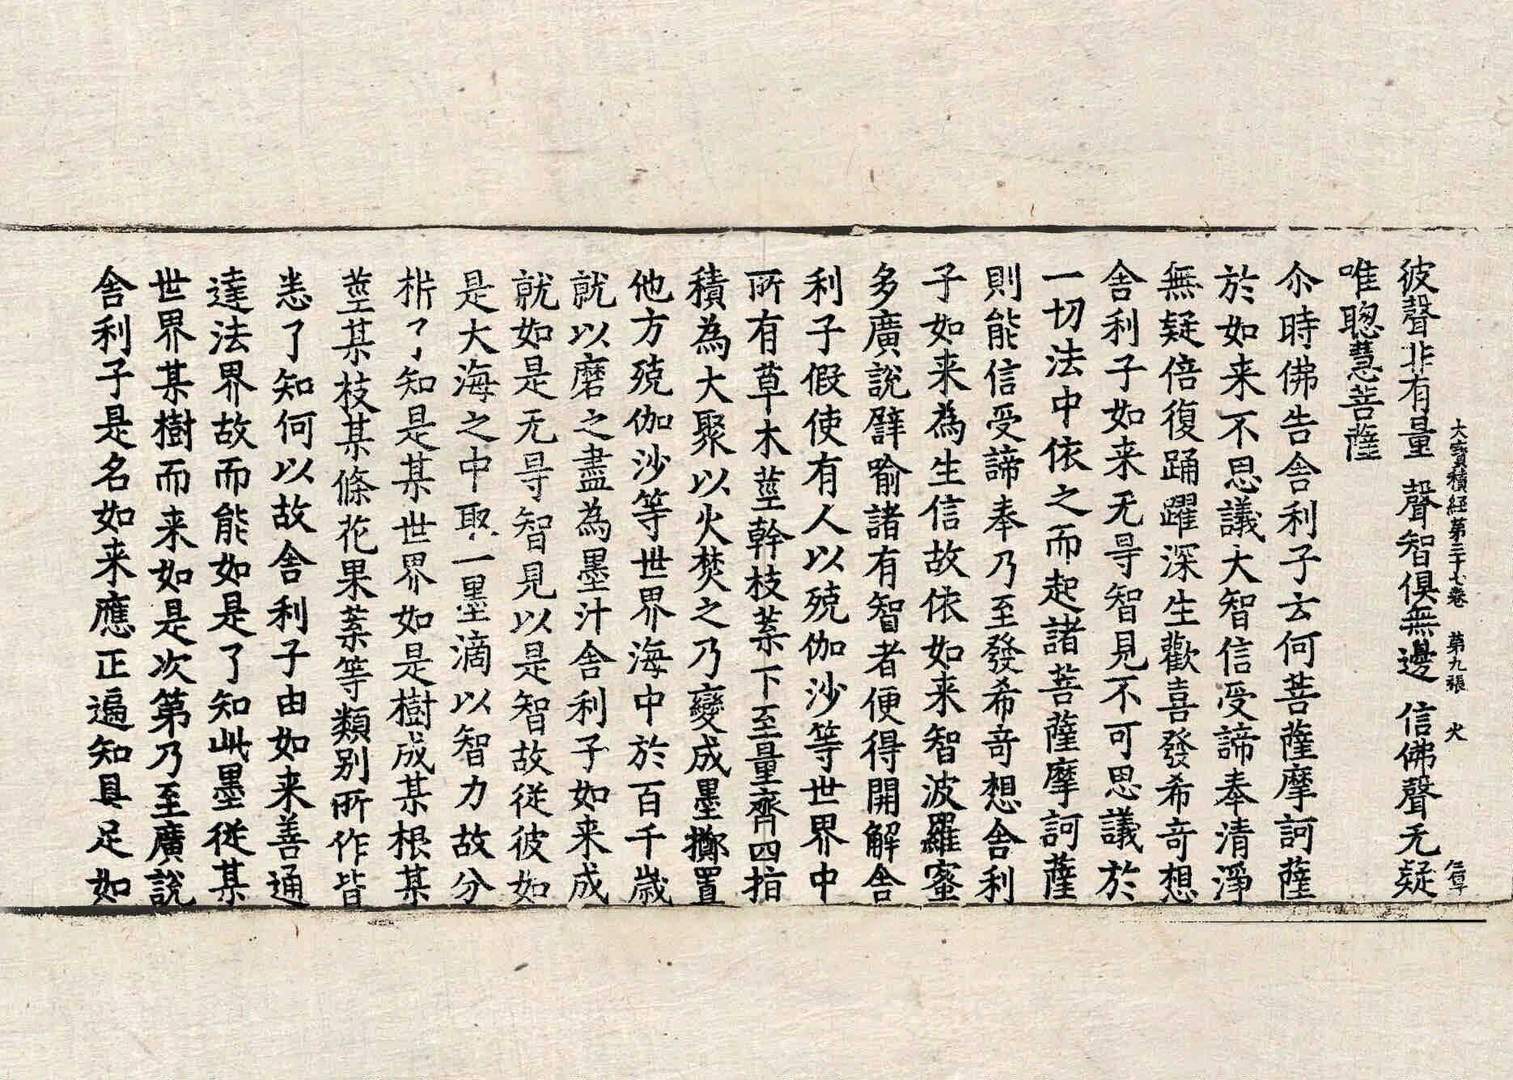 大寳積經第三十七卷 第九張 火
彼聲非有量 聲智俱無邊 信佛聲无疑
唯聰慧菩薩
尒時佛告舎利子云何菩薩摩訶薩
於如来不思議大智信受諦奉清淨
無疑倍復踊躍深生歡喜發希竒想
舎利子如来无㝵智見不可思議於
一切法中依之而起諸菩薩摩訶薩
則能信受諦奉乃至發希竒想舎利
子如来為生信故依如来智波羅蜜
多廣說譬喻諸有智者便得開解舎
利子假使有人以殑伽沙等世界中
所有草木莖幹枝葉下至量齊四指
積為大聚以火焚之乃變成墨擲置
他方殑伽沙等世界海中於百千歳
就以磨之盡為墨汁舎利子如来成
就如是无㝵智見以是智故從彼如
是大海之中取一墨滴以智力故分
析了知是某世界如是樹成某根某
莖某枝某條花果葉等類別所作皆
悉了知何以故舎利子由如来善通
達法界故而能如是了知此墨從某
世界某樹而来如是次第乃至廣說
舎利子是名如来應正遍知具足如